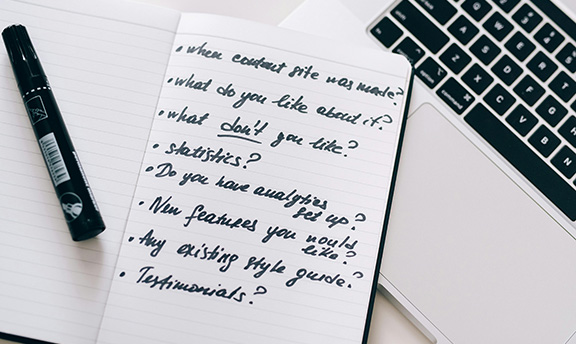 • when content site was made?
• what do you like about it?
• what don't you like?
• statistics?
• Do you have analytics
set up?
• New features you would
like?
• Any existing style guide?
• Testimonials?